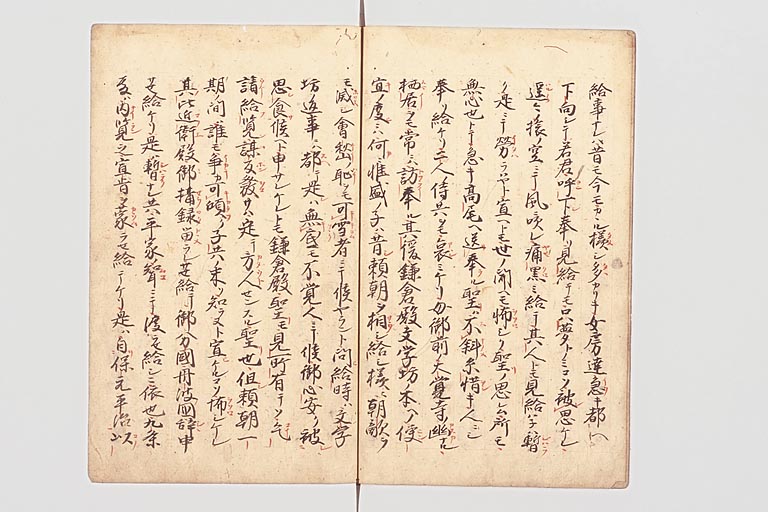 給事ナレハ昔モ今モカヽル様シ多カリキ女房達急キ都ヘ
下向シテ若君呼下奉リ見給テモ只夢トノミソ被思ケレ
遥々旅ノ空ニテ風咲レ痛黒ミ給テ其人トモ見給ハス暫
ク是ニテ労ラハヤト宣ヘトモ世ノ聞ヘモ怖シク聖ノ思ハム所モ
無心也トテ急キ高尾ヘ送奉ル聖ハ不斜糸惜キ人ニシ
奉リ給ケリ二人侍共ヲモ哀ミケリ母御前大覚寺ノ幽ナル
栖居ヲモ常ニハ訪奉ル其後鎌倉殿文学坊本ヘノ便
宜度ニハ何ニ惟盛カ子ハ昔頼朝ヲ相シ給シ様ニ朝敵ヲ
モ滅シ会稽ノ恥ヲモ可雪者ニテ候ヤラント問給時ハ文学
坊返事ハ都テ是ハ無底モ不覚人ニテ候御心安ク被
思食候ヘト申サレケレトモ鎌倉殿聖モ見所有テソ乞
請給覧謀反発サハ定テ方人センスル聖也但頼朝一
期ノ間ハ誰モ争カ可傾ク子共ノ末ハ知ラスト宣ケルコソ怖シケレ
其比近衛殿御摂録留ラレサセ給テ御分国丹波国辞申
サセ給ケリ是ハ暫ナレ共平家聟ニテ渡セ給シニ依也九条
殿ハ内覧ノ宣旨ヲ蒙ラセ給テケリ是ハ自保元平治以